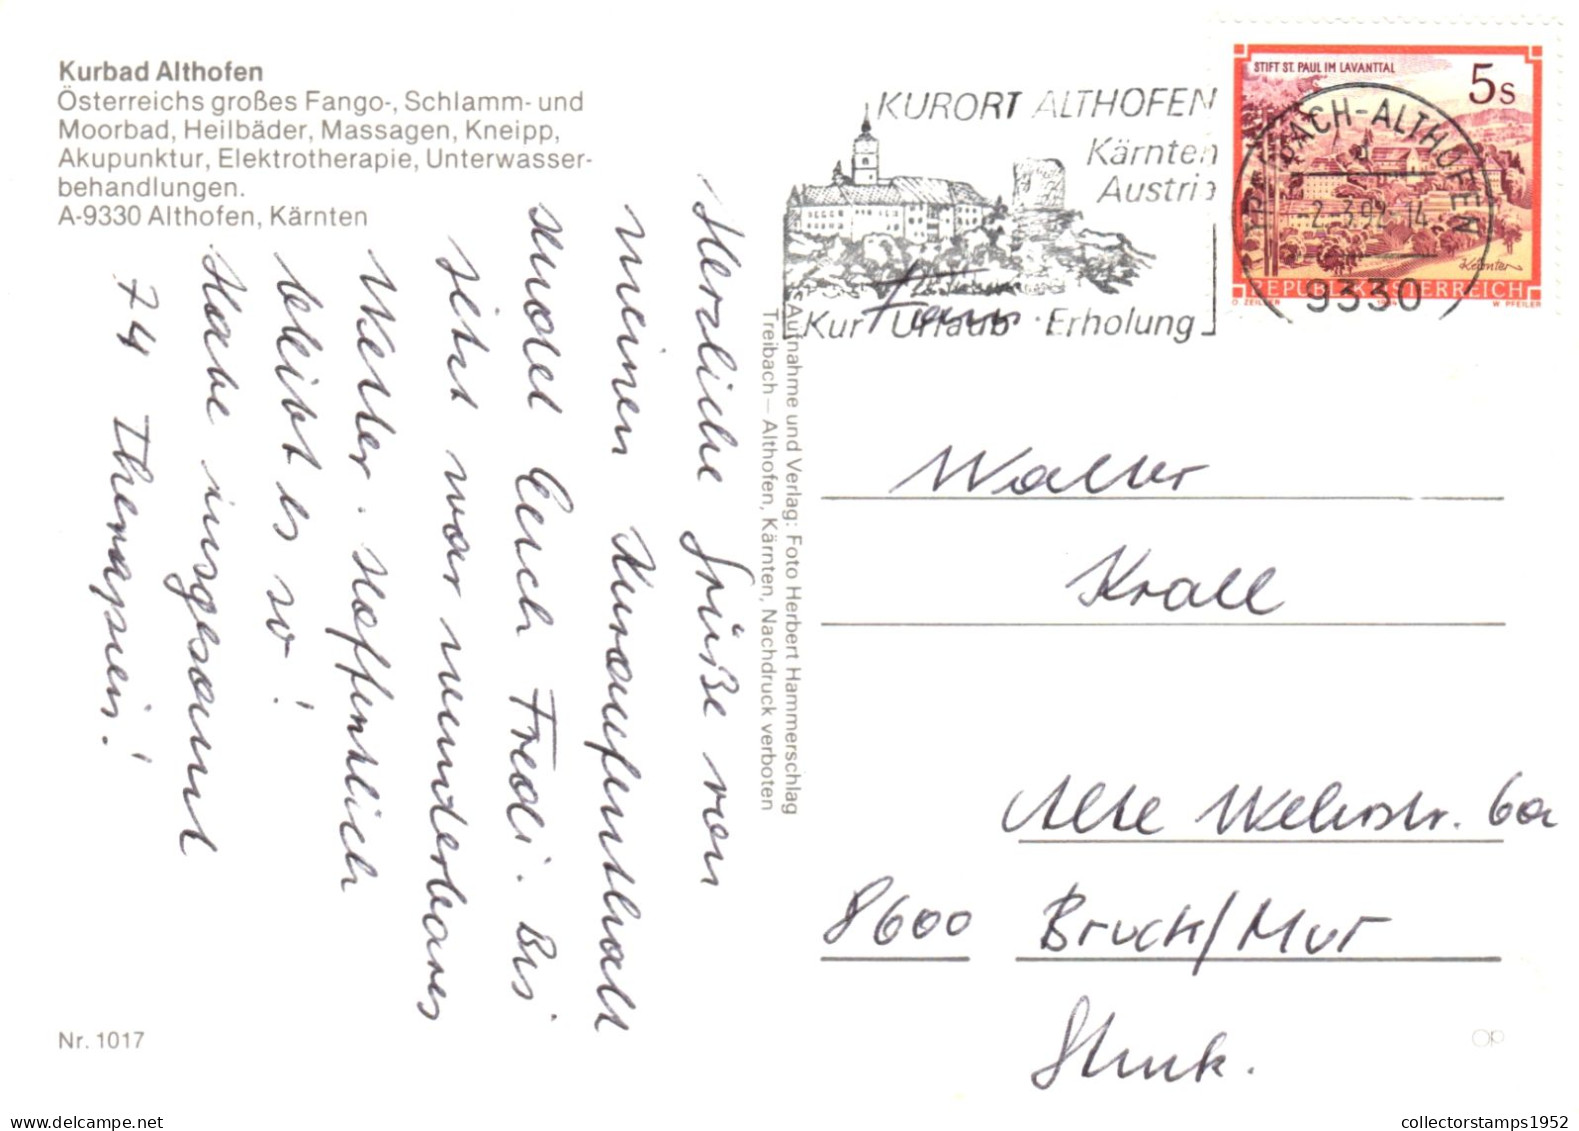 Kurbad Althofen
Österreichs großes Fango-, Schlamm- und
Moorbad, Heilbäder, Massagen, Kneipp,
Akupunktur, Elektrotherapie, Unterwasser-
behandlungen.
A-9330 Althofen, Kärnten
Herzliche Grüße von
meinem Kuraufenthalt
sendet Euch Fredi. Bis
jetzt war wunderbares
Wetter. Hoffentlich
bleibt es so!
Habe insgesamt
74 Therapien!
Nr. 1017
Aufnahme und Verlag: Foto Herbert Hammerschlag
Treibach – Althofen, Kärnten, Nachdruck verboten
KURORT ALTHOFEN
Kärnten
Austria
Kur Urlaub Erholung
Fam.
STIFT ST. PAUL IM LAVANTTAL
5s
REPUBLIK ÖSTERREICH
O. ZEILLER
W. PFEILER
TREIBACH-ALTHOFEN
-2.-3.92-14
9330
Walter
Krall
Alte Wehrstr. 6a
8600 Bruck/Mur
Stmk.
collectorstamps1952